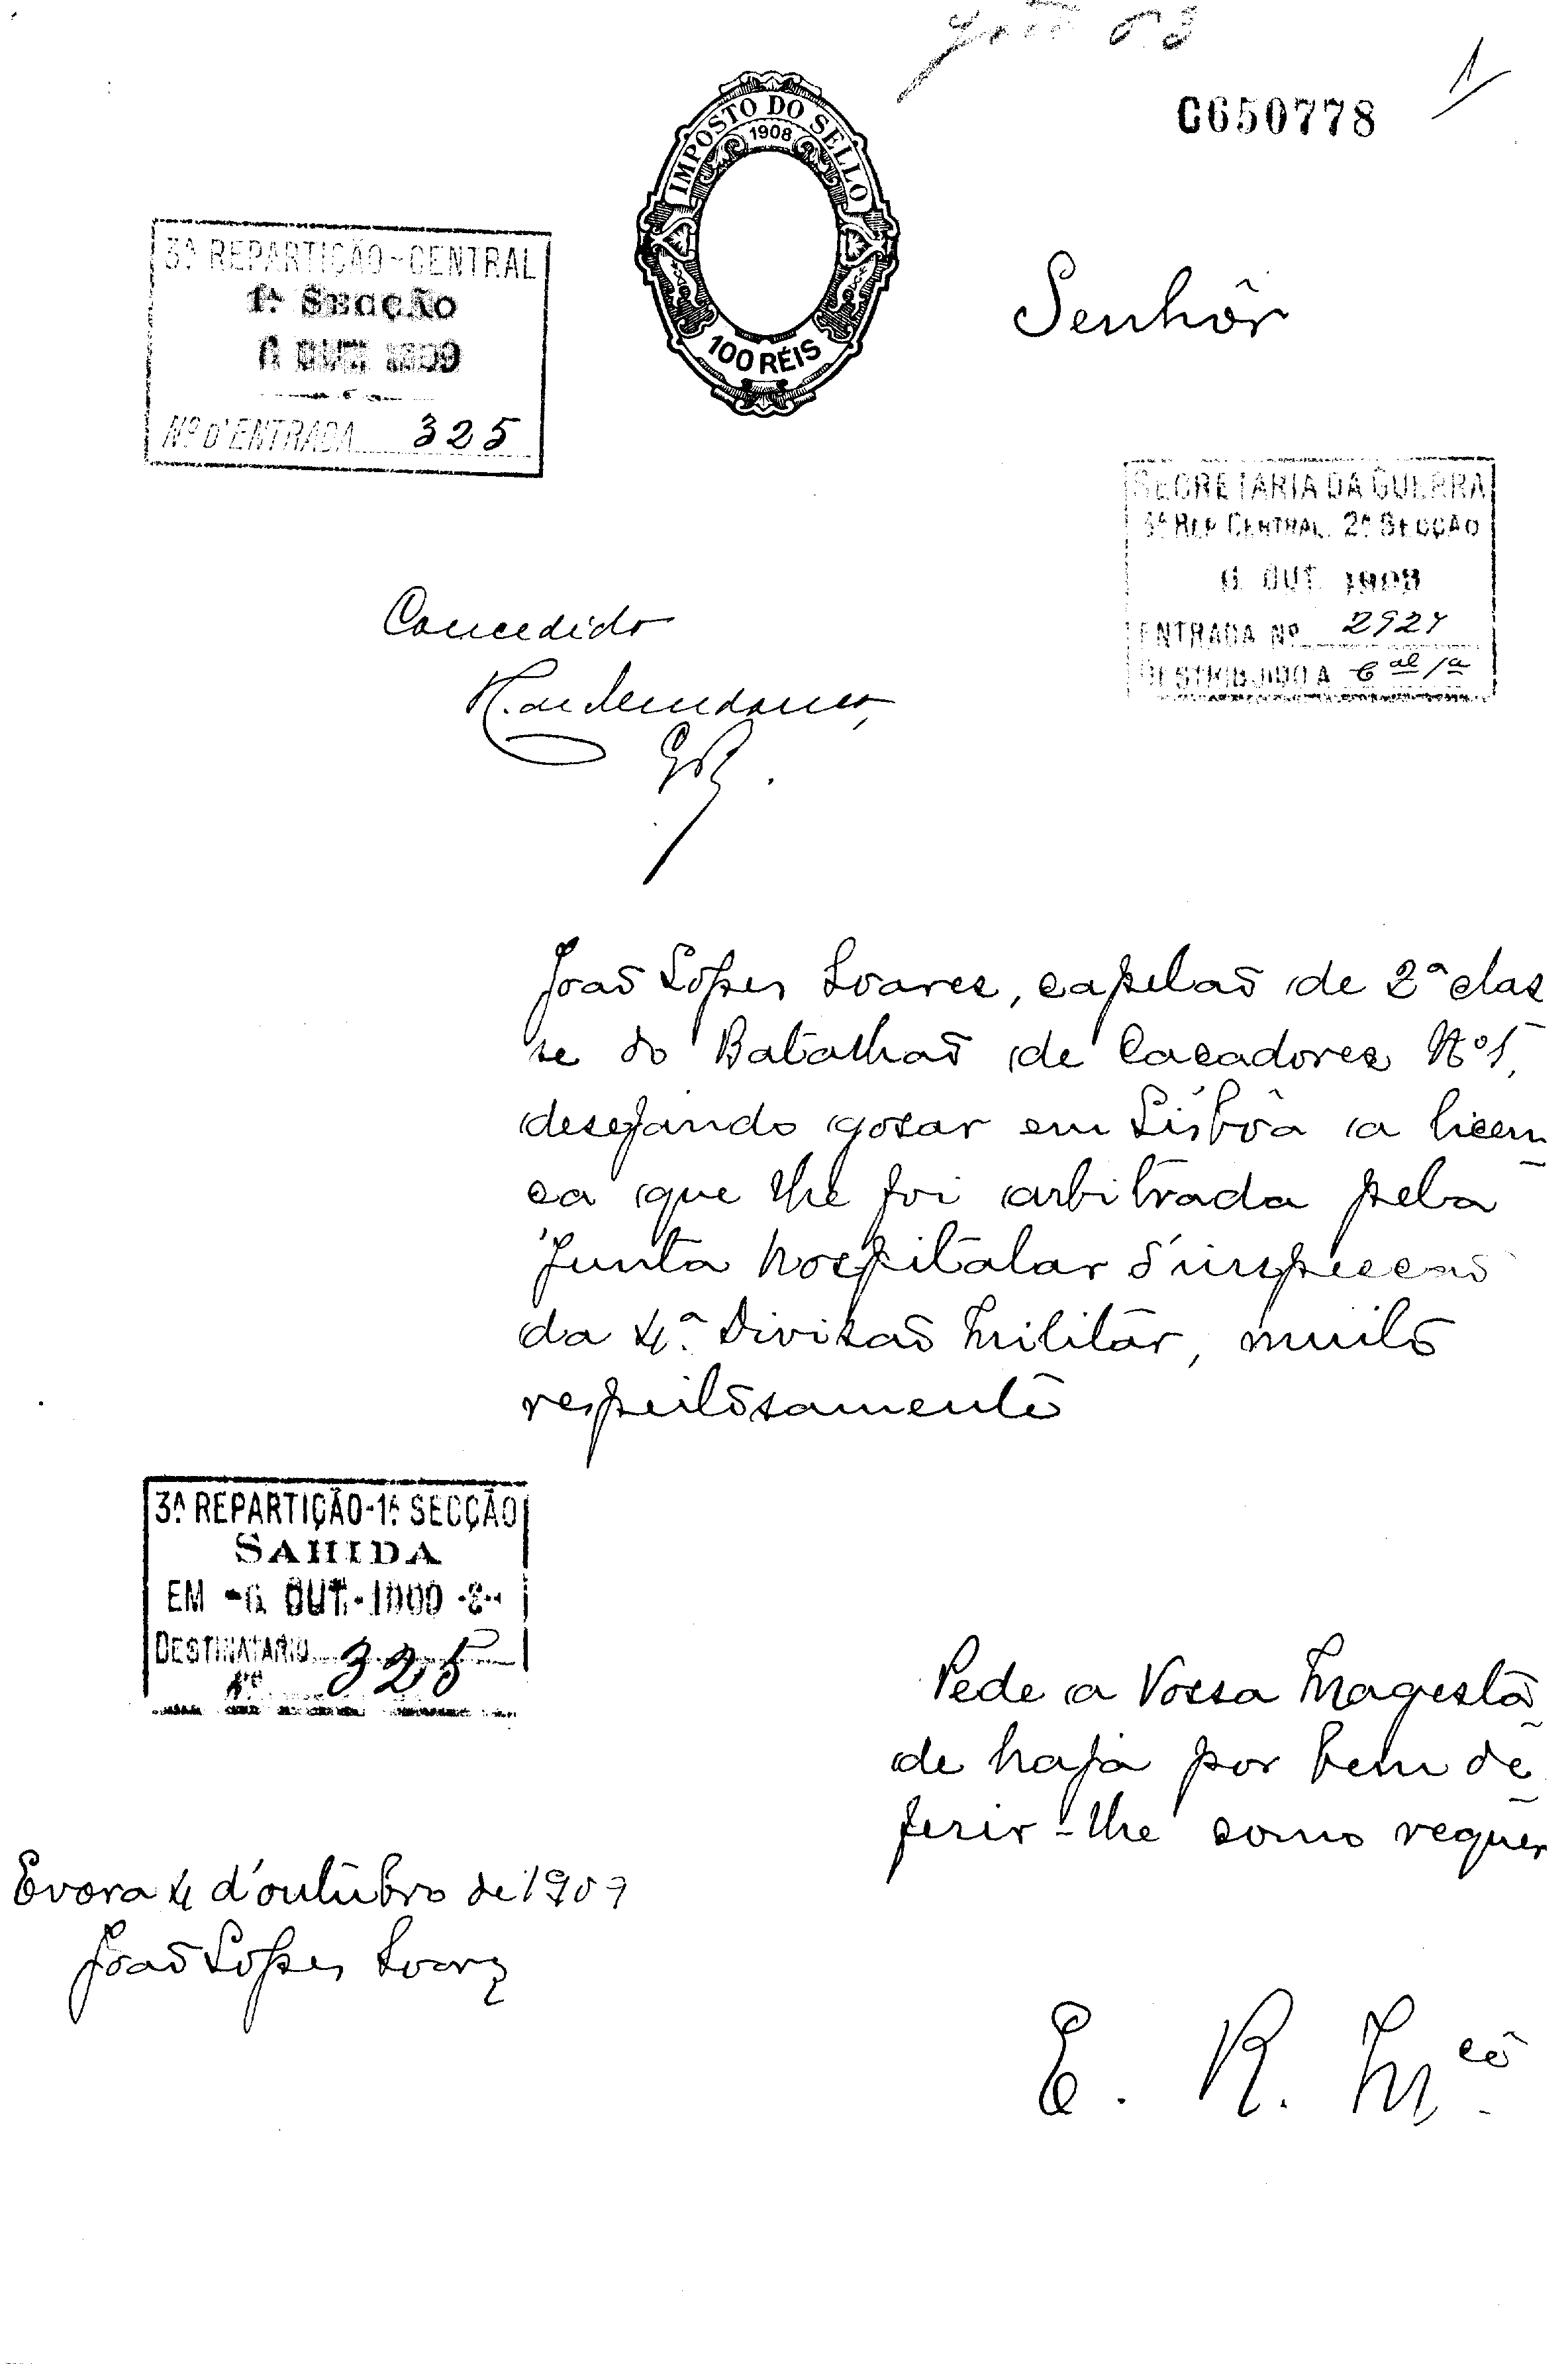 C650778
1
IMPOSTO DO SELLO
1908
100 RÉIS
3ª REPARTIÇÃO-CENTRAL
1ª SECÇÃO
6 OUT 1909
Nº D'ENTRADA 325
Senhôr
SECRETARIA DA GUERRA
REP CENTRAL. 2ª SECÇÃO
6 OUT
ENTRADA Nº
DESTRIBUIDO A 6al 1a
Concedido
João Lopes Soares, capelaõ de 2ª clas
se do Batalhaõ de Cacadores Nº1,
desejando gosar em Lisbôa a licen
ca que lhe foi arbitrada pela
Junta hospitalar d'inspeccaõ
da 4ª Divisaõ Militar, muito
respeitosamente
3ª REPARTIÇÃO-1ª SECÇÃO
SAHIDA
EM -6 OUT.-1909
DESTINATARIO
Nº 325
Pede a Vossa Magestá
de haja por bem de
ferir-lhe como requer
Evora 4 d'outubro de 1909
João Lopes Soares
E. R. Mcê